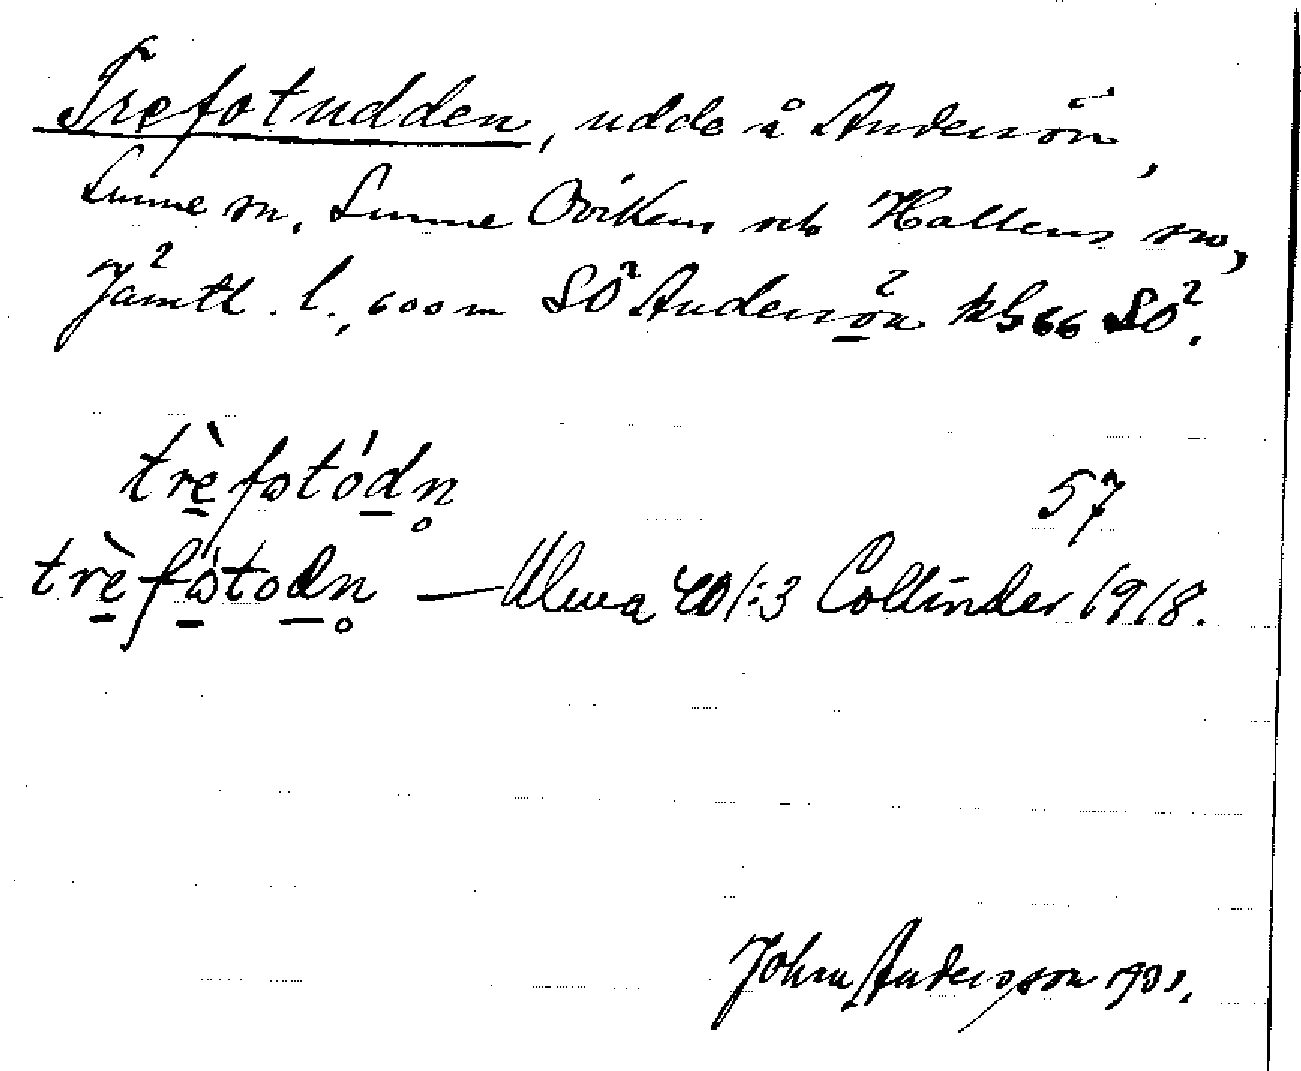 Trefotudden, udde å Andersön,
Sunne sn, Sunne Ovikens och Hallens sna,
Jämtl. l., 600 m SÖ Andersön kbl 66 SÖ.
trèfotódn
57
trèfótodn — Ulma 40/:3 Collinder 1918.
John Andersson 1931.